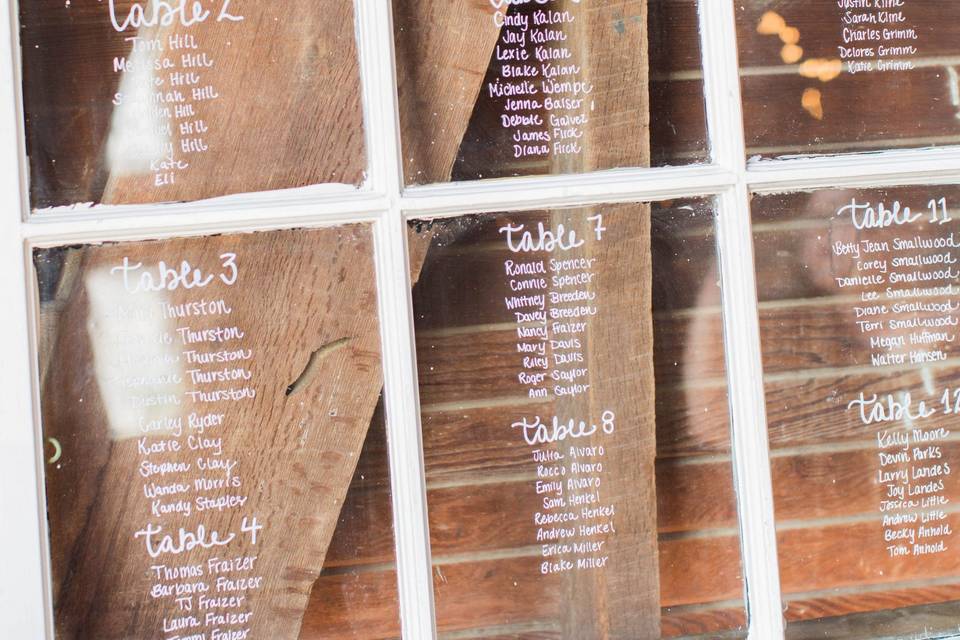 Table 2
Tom Hill
Hill
Hill
Hill
Hill
Hill
Hill
Kate
Eli
Table 3
Thurston
Thurston
Thurston
Stephanie Thurston
Dustin Thurston
Carley Ryder
Katie Clay
Stephen Clay
Wanda Morris
Randy Staples
Table 4
Thomas Fraizer
Barbara Fraizer
TJ Fraizer
Laura Fraizer
Tommi Fraizer
Cindy Kalan
Jay Kalan
Lexie Kalan
Blake Kalan
Michelle Wempe
Jenna Balser
Debbie Galvez
James Flick
Diana Flick
Table 7
Ronald Spencer
Connie Spencer
Whitney Breeden
Davey Breeden
Nancy Fraizer
Mary Davis
Riley Davis
Roger Saylor
Ann Saylor
Table 8
Julia Alvaro
Rocco Alvaro
Emily Alvaro
Sam Henkel
Rebecca Henkel
Andrew Henkel
Erica Miller
Blake Miller
Justin Kline
Sarah Kline
Charles Grimm
Delores Grimm
Katie Grimm
Table 11
Betty Jean Smallwood
Corey Smallwood
Danielle Smallwood
Lee Smallwood
Diane Smallwood
Terri Smallwood
Megan Huffman
Walter Hansen
Table 12
Kelly Moore
Devin Parks
Larry Landes
Joy Landes
Jessica Little
Andrew Little
Becky Arnold
Tom Arnold